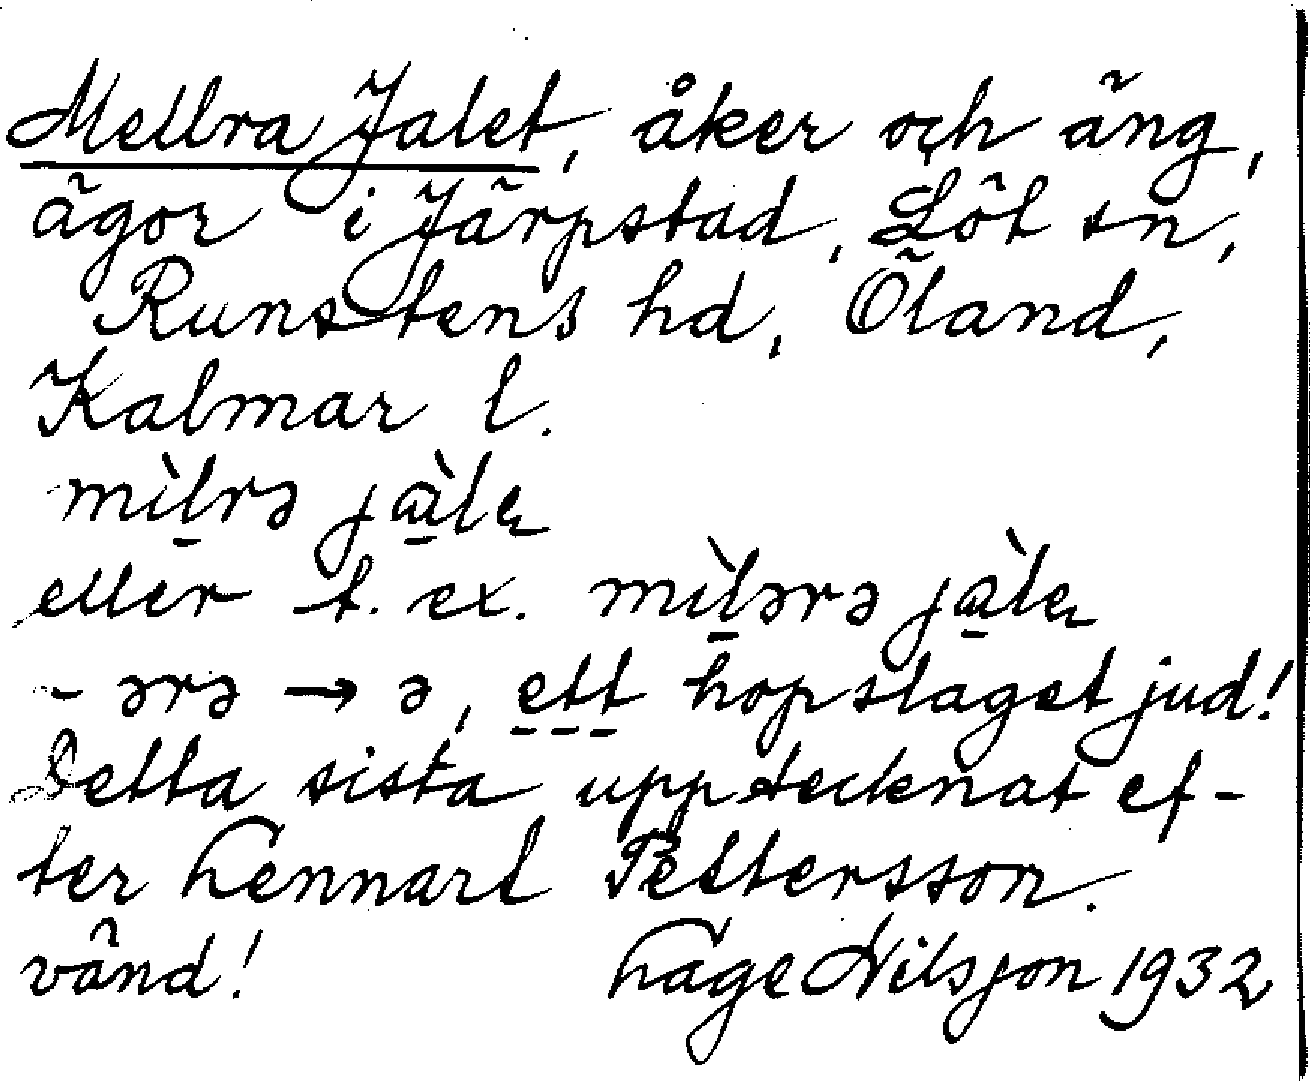 Mellra Jalet, åker och äng,
ägor i Järpstad, Löt sn,
Runstens hd, Öland,
Kalmar l.
mìlrə jàlę
eller t. ex. mìlərə jàlę
- ərə → ə, ett hopslaget jud!
Detta sista upptecknat ef-
ter Lennart Pettersson.
vänd! Hage Nilsson 1932